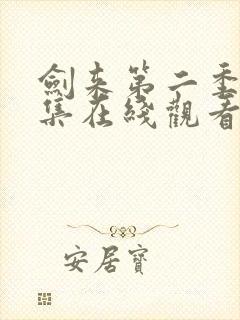 劍来第二季
集在綫觀看
安居寶